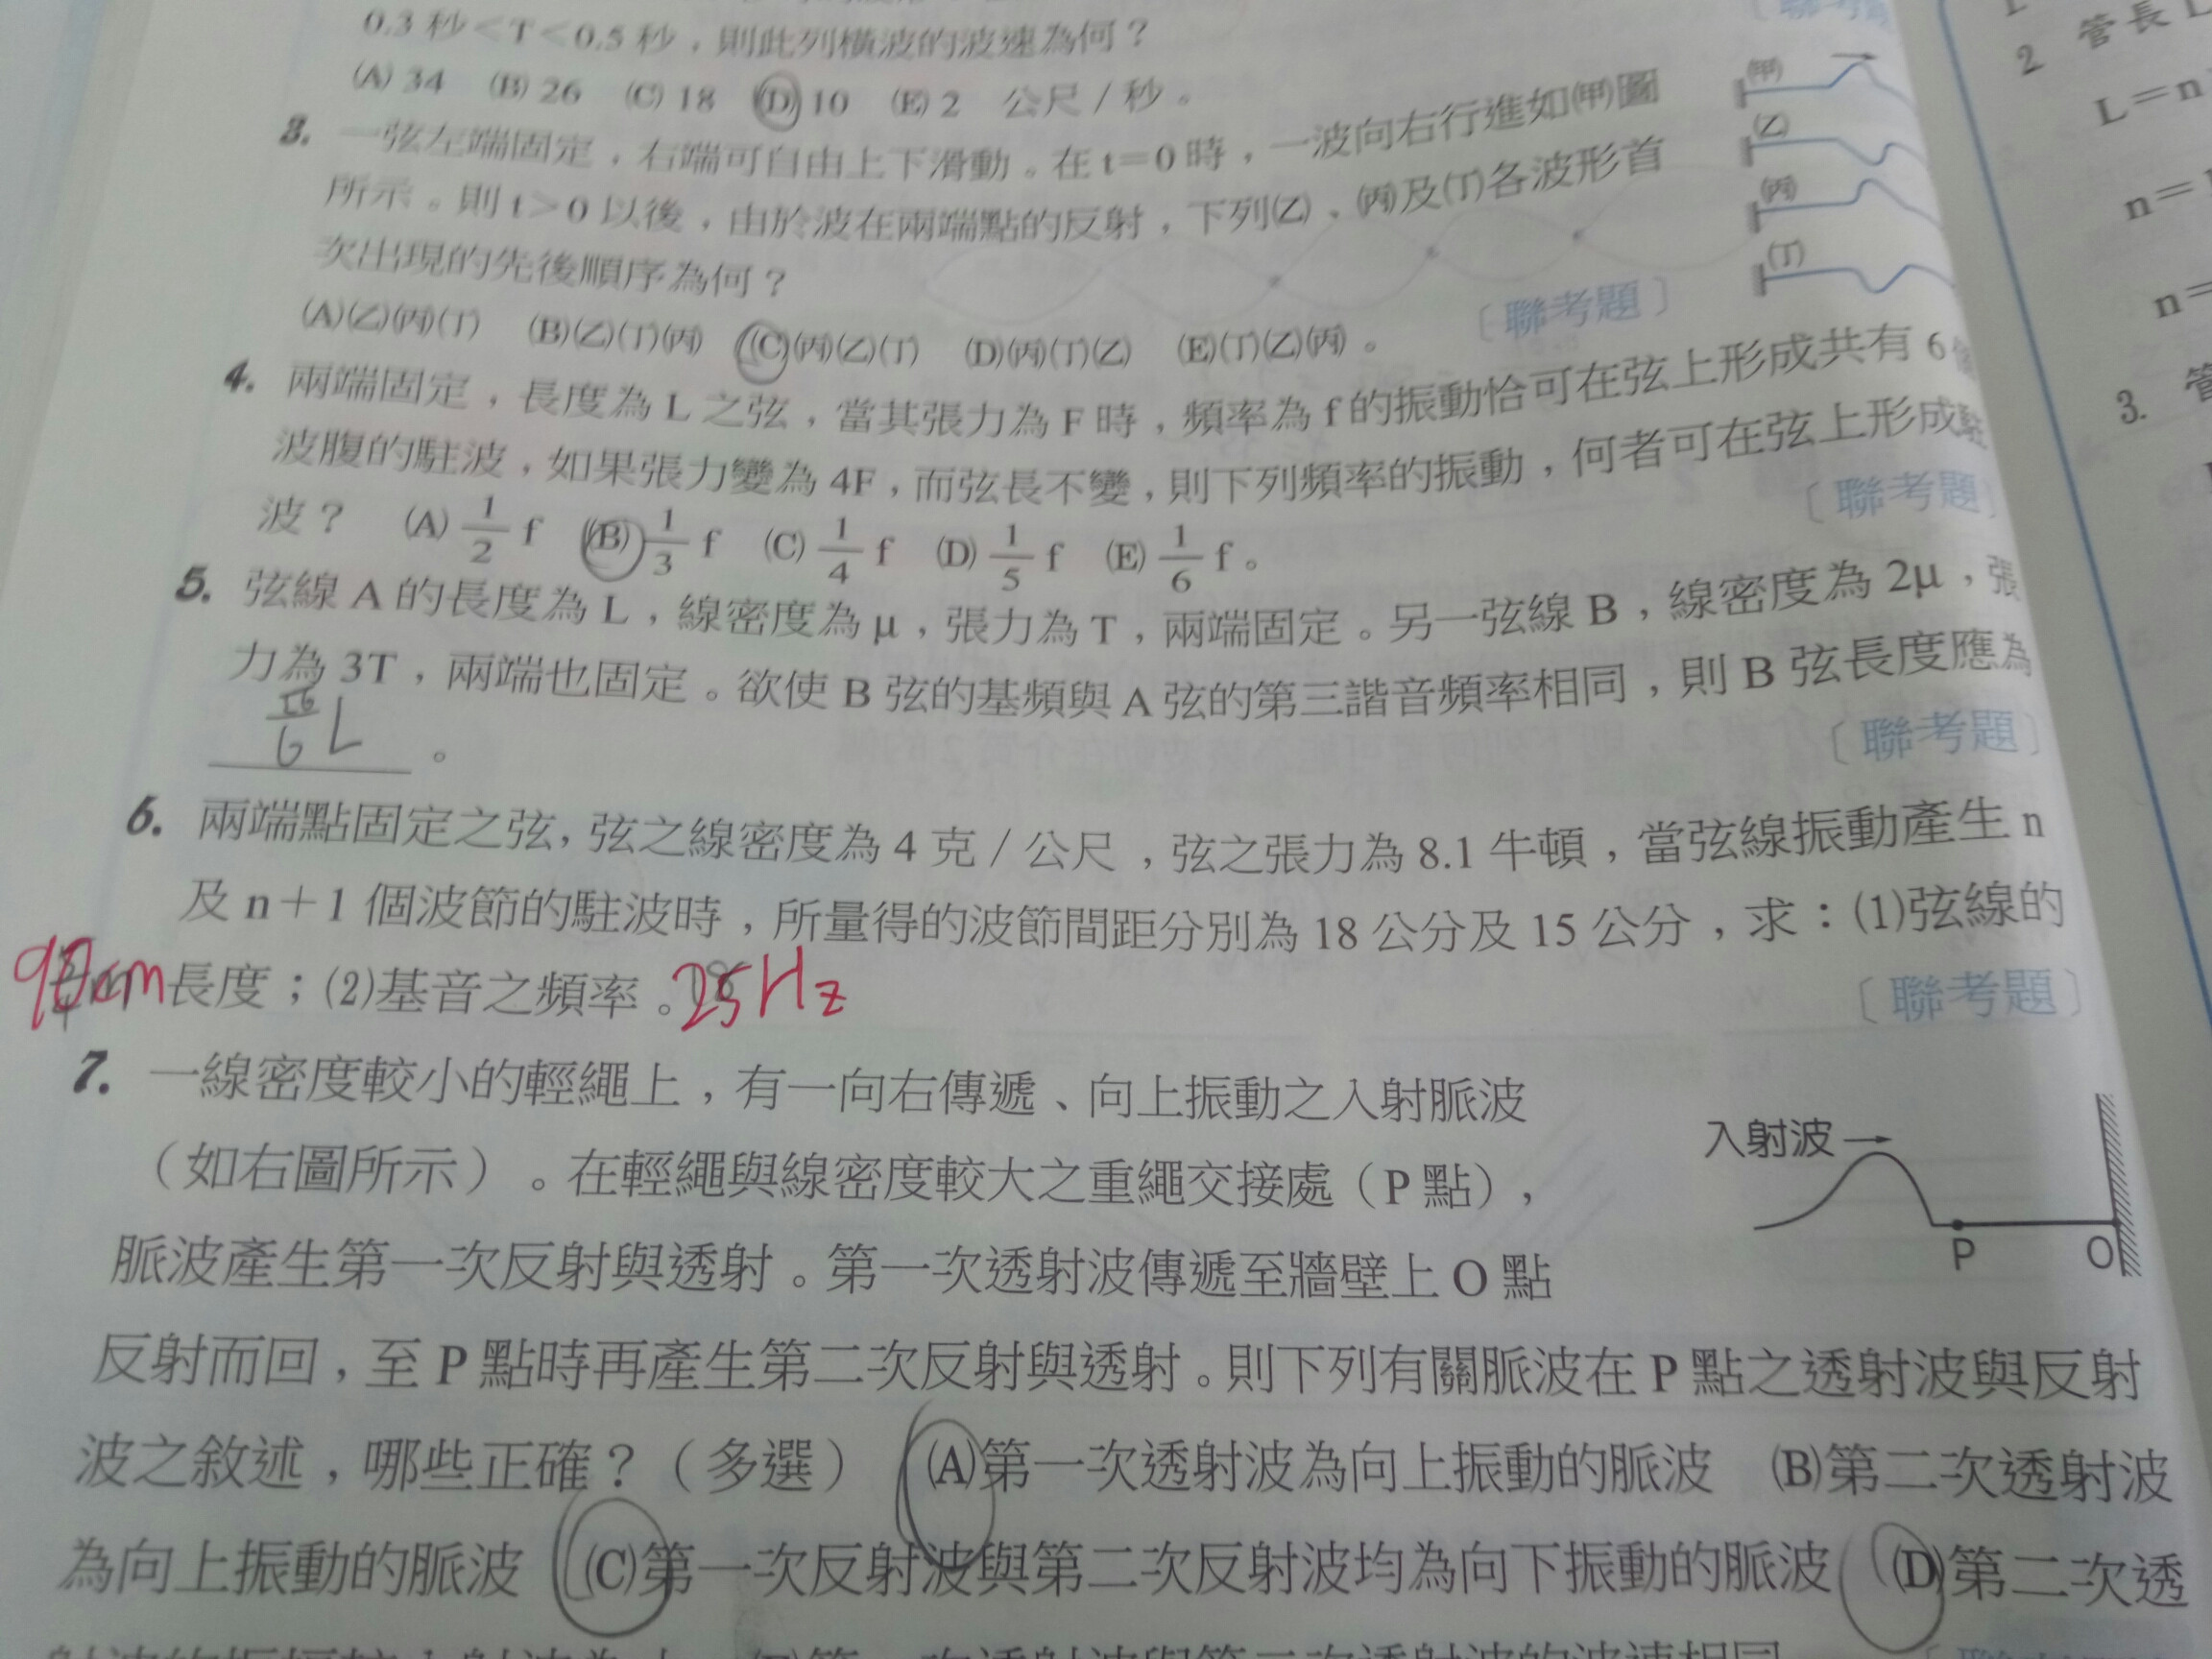 0.3 秒<T<0.5 秒，則此列橫波的波速為何？
(A) 34 (B) 26 (C) 18 (D) 10 (E) 2 公尺／秒。
3. 一弦左端固定，右端可自由上下滑動。在 t＝0 時，一波向右行進如(甲)圖
所示。則 t>0 以後，由於波在兩端點的反射，下列(乙)、(丙)及(丁)各波形首
次出現的先後順序為何？
〔聯考題〕
(A)(乙)(丙)(丁) (B)(乙)(丁)(丙) (C)(丙)(乙)(丁) (D)(丙)(丁)(乙) (E)(丁)(乙)(丙)。
(甲)
(乙)
(丙)
(丁)
4. 兩端固定，長度為 L 之弦，當其張力為 F 時，頻率為 f 的振動恰可在弦上形成共有 6
波腹的駐波，如果張力變為 4F，而弦長不變，則下列頻率的振動，何者可在弦上形成駐
波？ (A) 1/2 f (B) 1/3 f (C) 1/4 f (D) 1/5 f (E) 1/6 f。
〔聯考題〕
5. 弦線 A 的長度為 L，線密度為 μ，張力為 T，兩端固定。另一弦線 B，線密度為 2μ，張
力為 3T，兩端也固定。欲使 B 弦的基頻與 A 弦的第三諧音頻率相同，則 B 弦長度應為
√6/6 L 。
〔聯考題〕
6. 兩端點固定之弦，弦之線密度為 4 克／公尺，弦之張力為 8.1 牛頓，當弦線振動產生 n
及 n＋1 個波節的駐波時，所量得的波節間距分別為 18 公分及 15 公分，求：(1)弦線的
90cm 長度；(2)基音之頻率。25Hz
〔聯考題〕
7. 一線密度較小的輕繩上，有一向右傳遞、向上振動之入射脈波
（如右圖所示）。在輕繩與線密度較大之重繩交接處（P 點），
脈波產生第一次反射與透射。第一次透射波傳遞至牆壁上 O 點
反射而回，至 P 點時再產生第二次反射與透射。則下列有關脈波在 P 點之透射波與反射
波之敘述，哪些正確？（多選） (A)第一次透射波為向上振動的脈波 (B)第二次透射波
為向上振動的脈波 (C)第一次反射波與第二次反射波均為向下振動的脈波 (D)第二次透
入射波→
P
O
2 管長
L＝n
n＝
n＝
3. 管